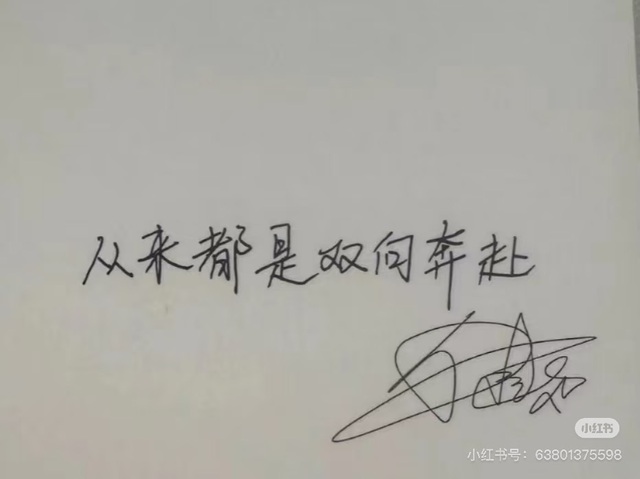 从来都是双向奔赴
小红书
小红书号：63801375598